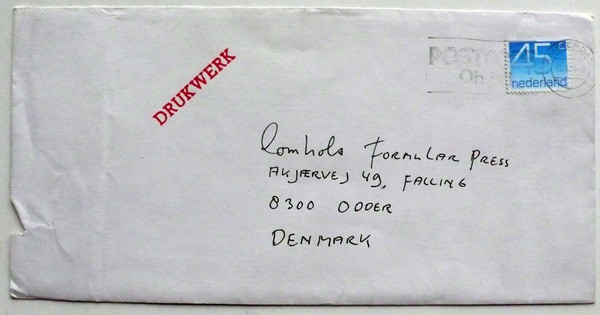 DRUKWERK
POSTC
Oh
45
nederland
Lomholt Formular Press
AKJÆRVEJ 49, FALLING
8300 ODDER
DENMARK